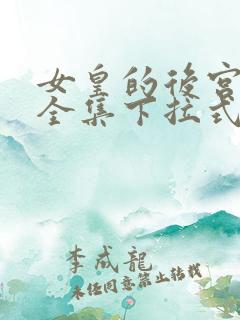 女皇的後宮
全集下拉式
李成龍
未经同意禁止转载